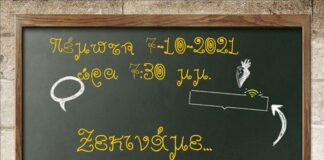 Πέμπτη 7-10-2021
ώρα 7:30 μμ.
Ξεκινάμε...